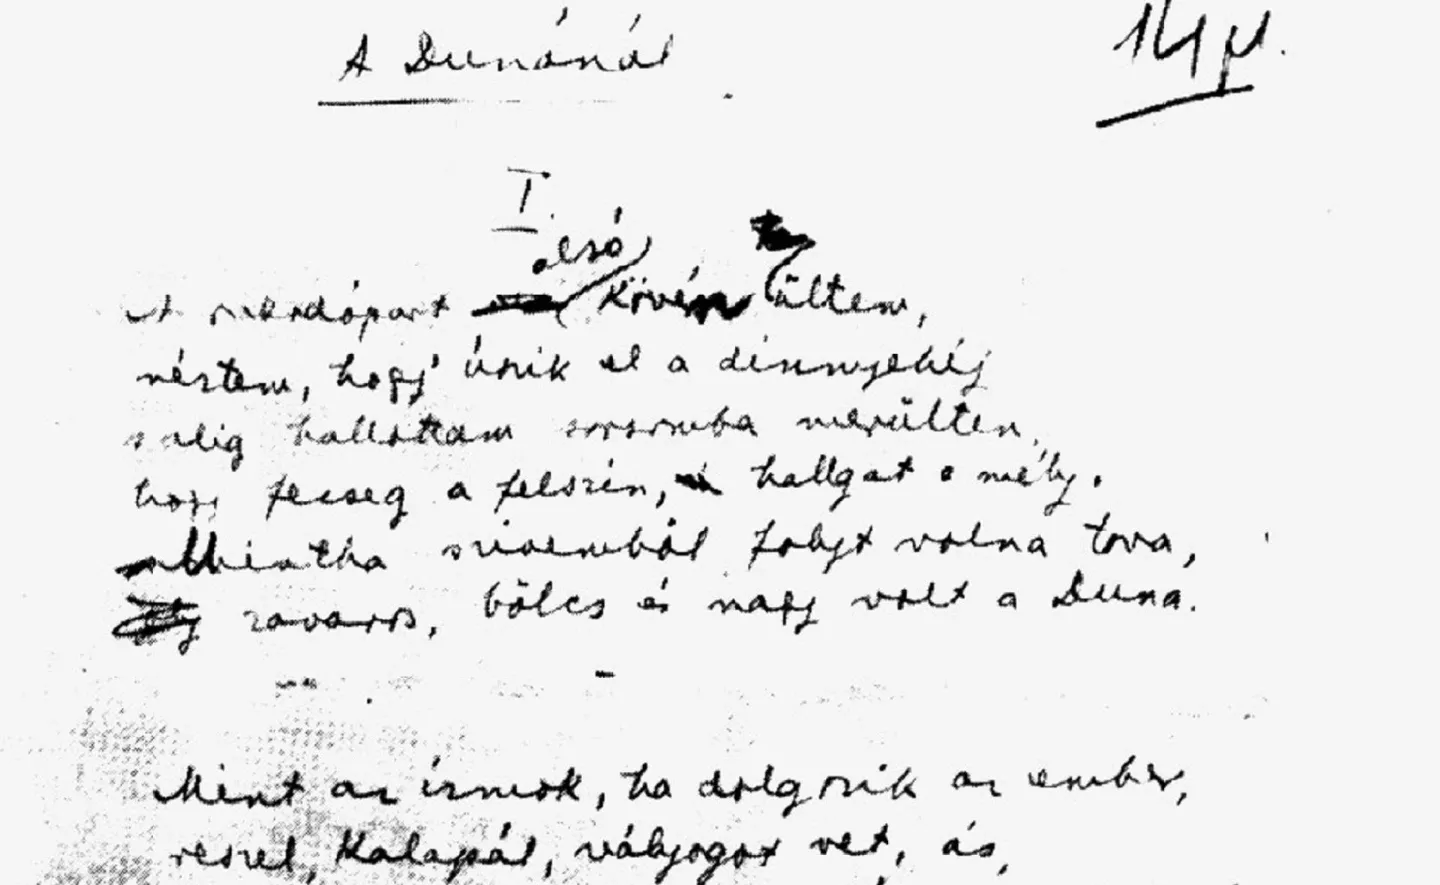 A Dunánál
14 pl.
I.
alsó
A rakodópart kövén ültem,
néztem, hogy úszik el a dinnyehéj
alig hallottam sorsomba merülten,
hogy fecseg a felszin, hallgat a mély.
Mintha szivemből folyt volna tova,
zavaros, bölcs és nagy volt a Duna.
Mint az izmok, ha dolgozik az ember,
reszel, kalapál, vályogot vet, ás,